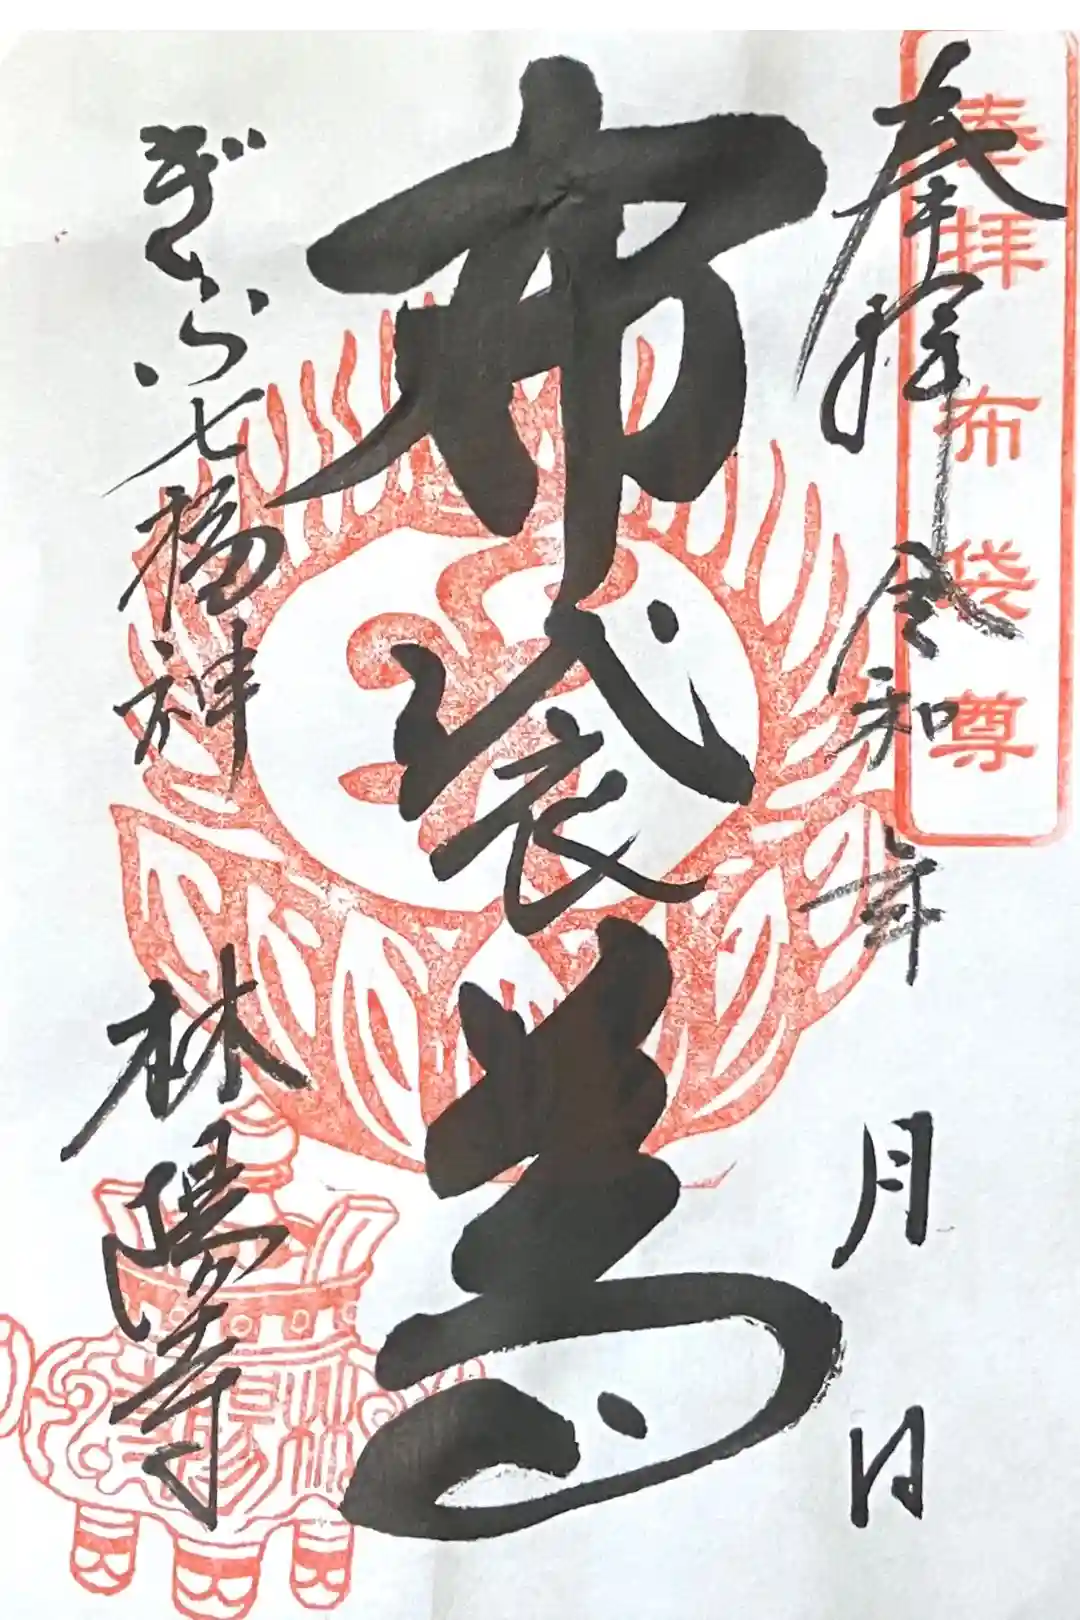 奉拝布袋尊
奉拝 令和 年 月 日
布袋尊
ぎふ七福神 林陽寺